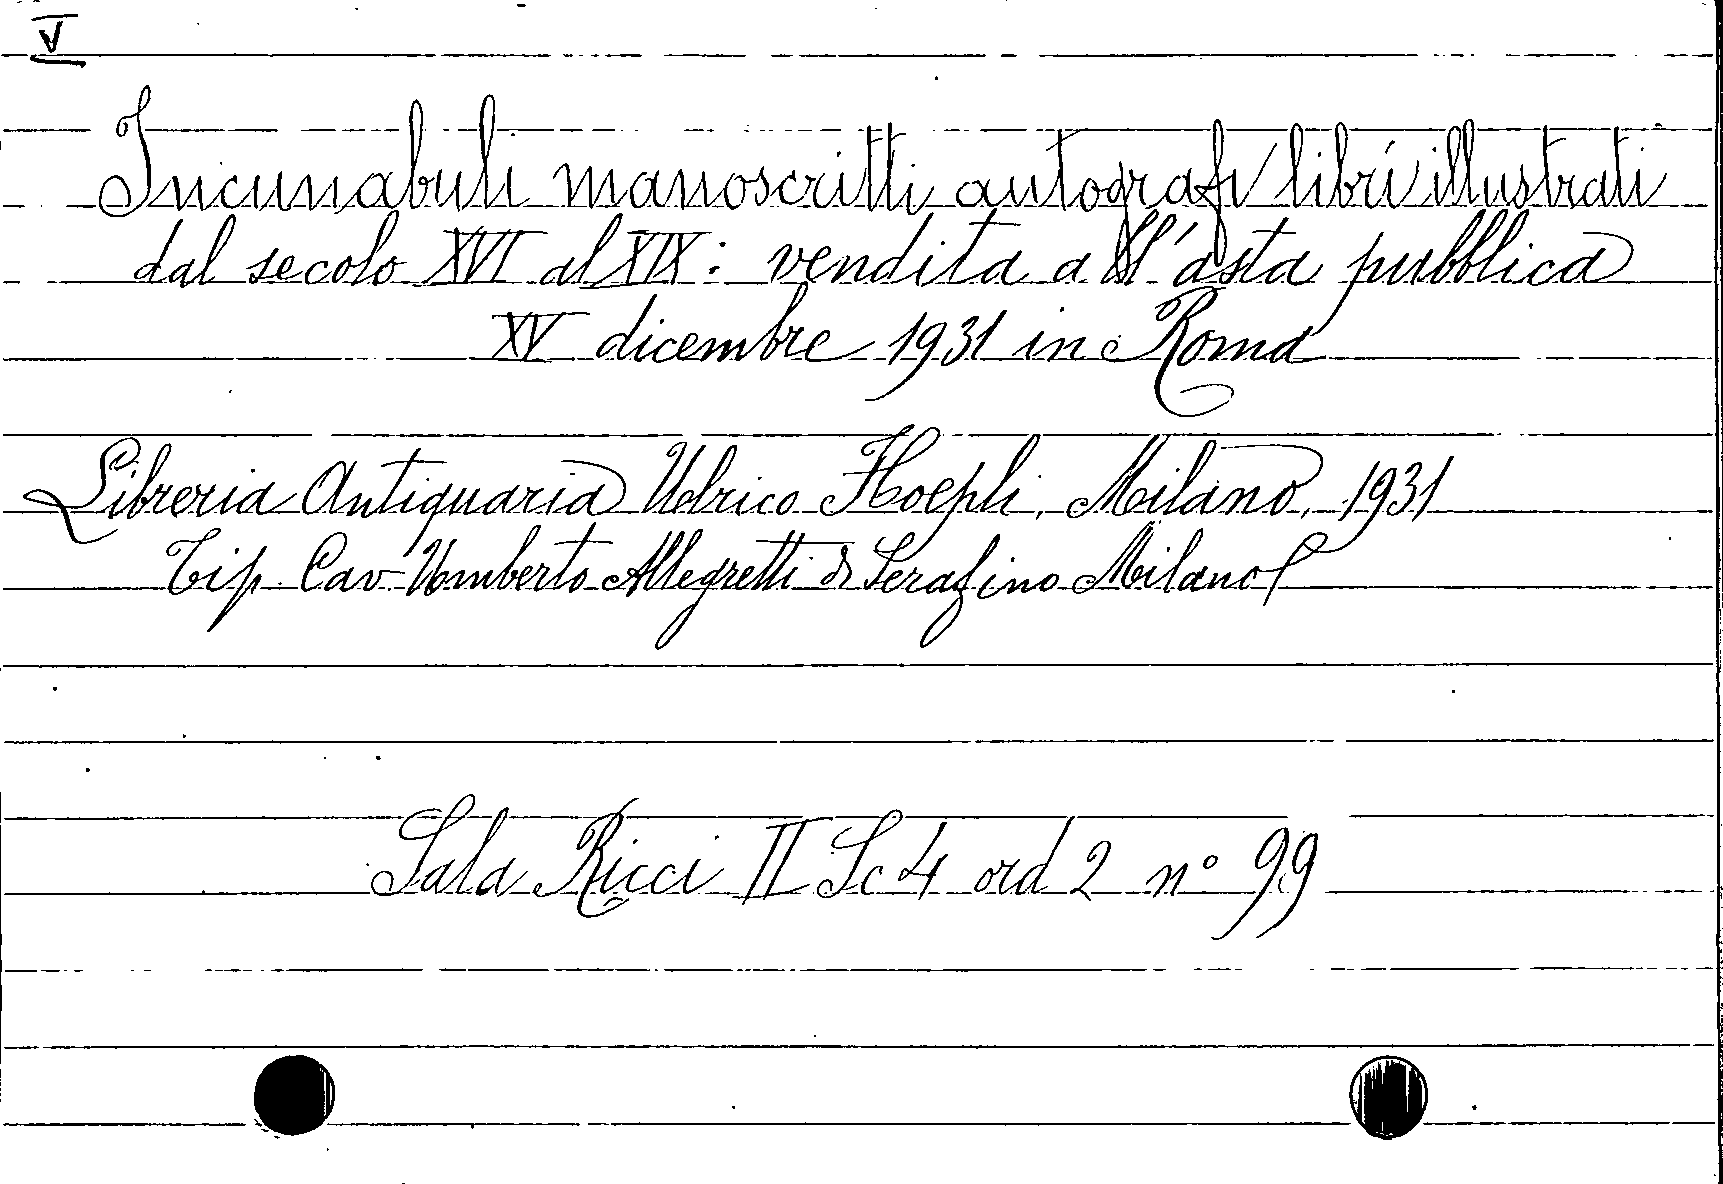 V
Incunabuli manoscritti autografi libri illustrati
dal secolo XVI al XIX: vendita all'asta pubblica
XV dicembre 1931 in Roma
Libreria Antiquaria Ulrico Hoepli, Milano, 1931
Tip. Cav. Umberto Allegretti di Serafino Milano
Sala Ricci II Sc 4 ord 2 n° 99